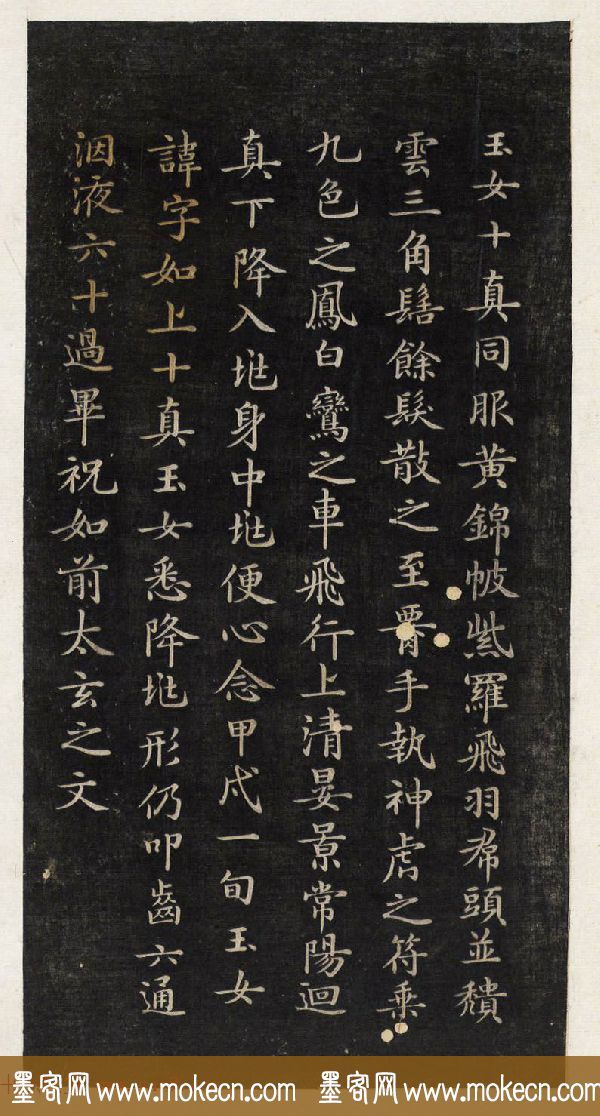 玉女十真同服黃錦帔紫羅飛羽帬頭並頹
雲三角髻餘髮散之至腰手執神虎之符乘
九色之鳳白鸞之車飛行上清晏景常陽迴
真下降入兆身中兆便心念甲戌一旬玉女
諱字如上十真玉女悉降兆形仍叩齒六通
洇液六十過畢祝如前太玄之文
墨客网 www.mokecn.com 墨客网 www.mokecn.com